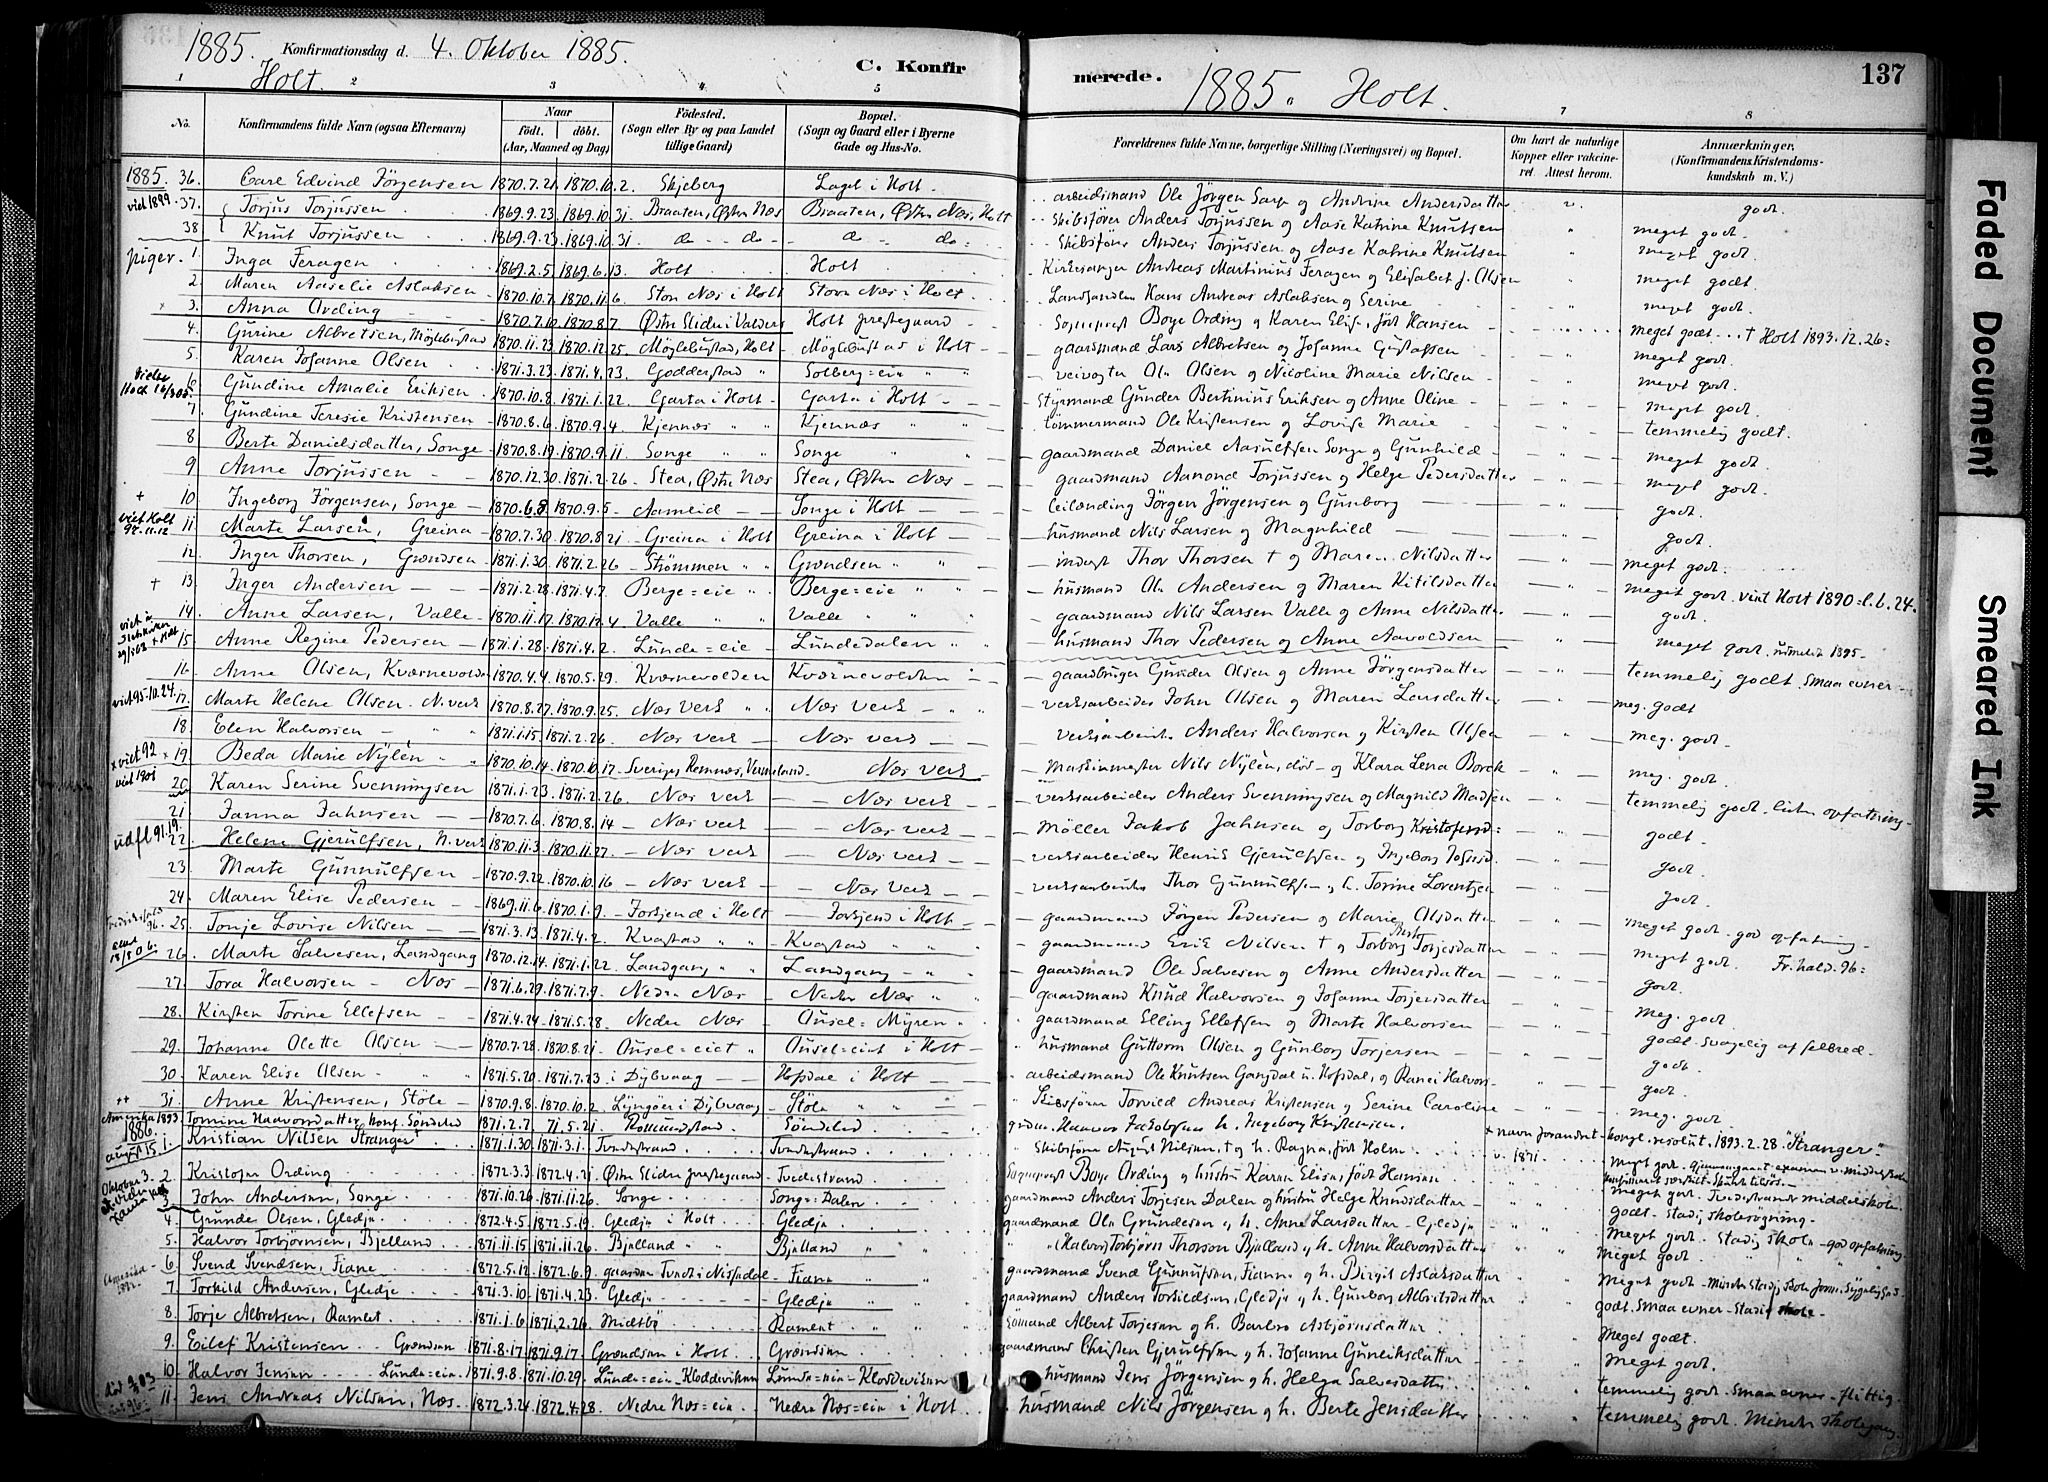 1885. Konfirmationsdag d. 4. Oktober 1885.
Holt.
C. Konfirmerede.
1885. Holt.
137
1 2 3 4 5 7 8
No. Konfirmandens fulde Navn (ogsaa Efternavn) Naar födt. döbt. (Aar, Maaned og Dag) Födested. (Sogn eller By og paa Landet tillige Gaard) Bopæl. (Sogn og Gaard eller i Byerne Gade og Hus-No. Forældrenes fulde Navne, borgerlige Stilling (Næringsvei) og Bopæl. Om havt de naturlige Kopper eller vaccineret. Attest herom. Anmærkninger. (Konfirmandens Kristendomskundskab m. V.)
1885. 36. Carl Edvind Jörgensen 1870.7.21. 1870.10.2. Skjeberg Laget i Holt arbeidsmand Ole Jörgen Sarp og Andrine Andersdatter godt.
37. Torjus Torjussen 1869.9.23 1869.10.31 Braaten, Østre Næs Braaten, Østre Næs, Holt Skibsförer Anders Torjussen og Aase Katrine Knutsen meget godt.
38 Knut Torjussen 1869.9.23 1869.10.31 do do do do Skibsförer Anders Torjussen og Aase Katrine Knutsen meget godt.
piger. 1. Inga Feragen 1869.2.5 1869.6.13 Holt Holt Kirkesanger Andreas Martinius Feragen og Elisabet J. Olsen meget godt.
2. Maren Aaselie Aslaksen 1870.10.7 1870.11.6 Store Næs i Holt Store Næs i Holt Landhandler Hans Andreas Aslaksen og Serine meget godt.
3. Anna Ording 1870.7.10 1870.8.7 Østre Slidre i Valders Holt prestegaard Sogneprest Boye Ording og Karen Elise, født Hansen meget godt. † Holt 1893.12.26
4. Gurine Albretsen, Möglebustad 1870.11.23 1870.12.25 Möglebustad, Holt Möglebustad i Holt gaardmand Lars Albretsen og Johanne Gustafsen meget godt.
5. Karen Johanne Olsen 1871.3.23 1871.4.23 Godderstad Solberg=eie veivogter Ole Olsen og Nicoline Marie Nilsen meget godt.
6 Gundine Amalie Eriksen 1870.10.8 1871.1.22 Garta i Holt Garta i Holt Styrmand Gunder Bertinius Eriksen og Anne Oline meget godt.
7. Gundine Teresie Kristensen 1870.8.6 1870.9.4 Kjennæs Kjennæs tömmermand Ole Kristensen og Lovise Marie temmelig godt.
8 Berte Danielsdatter, Songe 1870.8.19 1870.9.11 Songe Songe gaardmand Daniel Aasulfsen Songe og Gunhild meget godt.
9 Anne Torjussen 1870.12.30 1871.2.26 Stea, Østre Næs Stea, Østre Næs gaardmand Aanond Torjussen og Helge Pedersdatter meget godt.
10. Ingeborg Jörgensen, Songe 1870.6.8 1870.9.5 Aamlid Songe i Holt leilending Jörgen Jörgensen og Gunborg godt.
viet Holt 97.11.12 11. Marte Larsen, Greina 1870.7.30 1870.8.21 Greina i Holt Greina i Holt husmand Nils Larsen og Magnhild godt.
12. Inger Thorsen, Grændsen 1871.1.30 1871.2.26 Strömmen Grændsen inderst Thor Thorsen † og Maren Nilsdatter meget godt.
13. Inger Andersen 1871.2.28 1871.4.7 Berge=eie Berge=eie husmand Ole Andersen og Maren Kitilsdatter meget godt. viet Holt 1890
14. Anne Larsen, Valle 1870.11.17 1870.12.4 Valle Valle gaardmand Nils Larsen Valle og Anne Nilsdatter godt.
15 Anne Regine Pedersen 1871.1.28 1871.4.2 Lunde=eie Lundedalen husmand Thor Pedersen og Anne Aavoldsen meget godt. 1895
16. Anne Olsen, Kværnevolden 1870.4.4 1870.5.29 Kværnevolden Kværnevolden gaardbruger Gunder Olsen og Anne Jörgensdatter temmelig godt. Smaa evner
viet 95.10.24. 17. Marte Helene Olsen, N. verk 1870.8.27 1870.9.25 Næs verk Næs verk verksarbeider John Olsen og Maren Larsdatter meg. godt
18 Elen Halvorsen 1871.1.15 1871.2.26 Næs verk Næs verk verksarbeider Anders Halvorsen og Kirsten Olsen meg. godt.
viet 92 19. Beda Marie Nylén 1870.10.14 1870.10.17 Sverige, Remnæs, Vermeland Næs verk Maskinmester Nils Nylén, död og Klara Lena Borek meg. godt.
viet 1901 20 Karen Serine Svenningsen 1871.1.23 1871.2.26 Næs verk Næs verk verksarbeider Anders Svenningsen og Magnild Madsen temmelig godt. liden opfatning
21 Janna Jahnsen 1870.7.6 1870.8.14 Næs verk Næs verk Möller Jakob Jahnsen og Torborg Kristofersd. godt
udfl. 91.19. 22. Helene Gjerulfsen, N. verk 1870.11.3 1870.11.27 Næs verk Næs verk verksarbeider Henrik Gjerulfsen og Ingeborg Johnsd. godt.
23 Marte Gunnulfsen 1870.9.22 1870.10.16 Næs verk Næs verk verksarbeider Thor Gunnulfsen og h. Torine Lorentzen godt.
24. Maren Elise Pedersen 1869.11.6 1870.1.9 Foskjend i Holt Foskjend i Holt gaardmand Jörgen Pedersen og Marie Olsdatter meget godt. god opfatning
25 Tonje Lovise Nilsen 1871.3.13 1871.4.2 Kvastad Kvastad gaardmand Erik Nilsen † og Torborg Torjesdatter meget godt. Fr.hald. 96
26. Marte Salvesen, Landgang 1870.12.14 1871.1.22 Landgang Landgang gaardmand Ole Salvesen og Anne Andersdatter godt.
27. Tora Halvorsen Næs 1871.6.29 1871.7.9 Nedre Næs Nedre Næs gaardmand Knud Halvorsen og Johanne Torjersdatter meg. godt.
28. Kirsten Torine Ellefsen 1871.4.24 1871.5.28 Nedre Næs Ausel=Myren gaardmand Elling Ellefsen og Marte Halvorsen godt. Svagelig af helbred
29. Johanne Olette Olsen 1870.7.28 1870.8.21 Ausel=eiet Ausel=eiet i Holt husmand Guttorm Olsen og Gunborg Torjersen godt.
30 Karen Elise Olsen 1871.5.20 1871.7.23 i Dybvaag Hofsdal i Holt arbeidsmand Ole Knutsen Gangdal u. Hofsdal, og Ranei Halvors godt
31 Anne Kristensen, Støle 1870.9.8 1870.10.2 Lyngøer i Dybvaag Støle Skibsförer Torvild Andreas Kristensen og Serine Caroline meg. godt
Amerika 1893 Tomine Haavorsdatter, konf. Söndeled 1871.2.7 71.5.21 Söndeled grdm. Haavor Jakobsen h. Ingeborg Kristensen.
1886. august 15. 1. Kristian Nilsen Stranger 1871.1.30 1871.3.1 Tvedestrand Tvedestrand Skibsförer August Nilsen, † og h. Ragna, født Holm + navn forandret kongl. resolut. 1893.2.28 "Stranger"
Oktober 3. 2 Kristofer Ording 1872.3.3 1872.4.21 Østre Slidre prestegaard Tvedestrand Sogneprest Boye Ording og hustru Karen Elisa, født Hansen
3 John Andersen, Songe 1871.10.26 1871.11.26 Songe Songe=Dalen gaardmand Anders Torjesen Dalen og hustru Helge Knudsdatter meget godt. Tvedestrands middelskole
4. Grunde Olsen, Gledje 1872.4.5 1872.5.19 Gledje i Holt Gledje gaardmand Ole Grundesen og h. Anne Larsdatter Gledje godt. Stadig skolesögning
5. Halvor Torbjörnsen, Bjelland 1871.11.15 1871.11.26 Bjelland Bjelland (Halvor) Torbjörn Thorsen Bjelland og h. Anne Halvorsdatter meget godt. Stadig skole god opfatning
6 Svend Svendsen, Fiane 1872.5.12 1872.6.9 Fiane gaardmand Svend Gunnufsen, Fiane og h. Birgit Aslaksdatter meget godt
7 Torkild Andersen, Gledje 1871.3.10 1871.4.23 Gledje Gledje gaardmand Anders Torkildsen, Gledje og h. Gunborg Albretsdatter
8 Torje Albretsen, Rament 1871.1.6 1871.2.26 Midtbö Rament Sömand Albert Torjesen og h. Barbro Asbjørnsdatter godt. Smaa evner. Stadig skole
9 Eilef Kristensen Grændsen 1871.8.17 1871.9.17 Grændsen i Holt Grændsen gaardmand Christen Gjerulfsen og h. Johanne Gunleiksdatter Meget godt.
10. Halvor Jensen Lunde=eien 1871.9.8 1871.10.29 Lunde=eie Kloddeviken Lunde=eie Kloddeviken husmand Jens Jörgensen og h. Helga Salvesdatter meget godt.
11. Jens Andreas Nilsen, Næs 1872.3.24 1872.4.28 Nedre Næs=eie Nedre Næs=eie i Holt husmand Nils Jörgensen og h. Berte Jensdatter temmelig godt. Smaa evner flittig
temmelig godt.
Faded Document
Smeared Ink